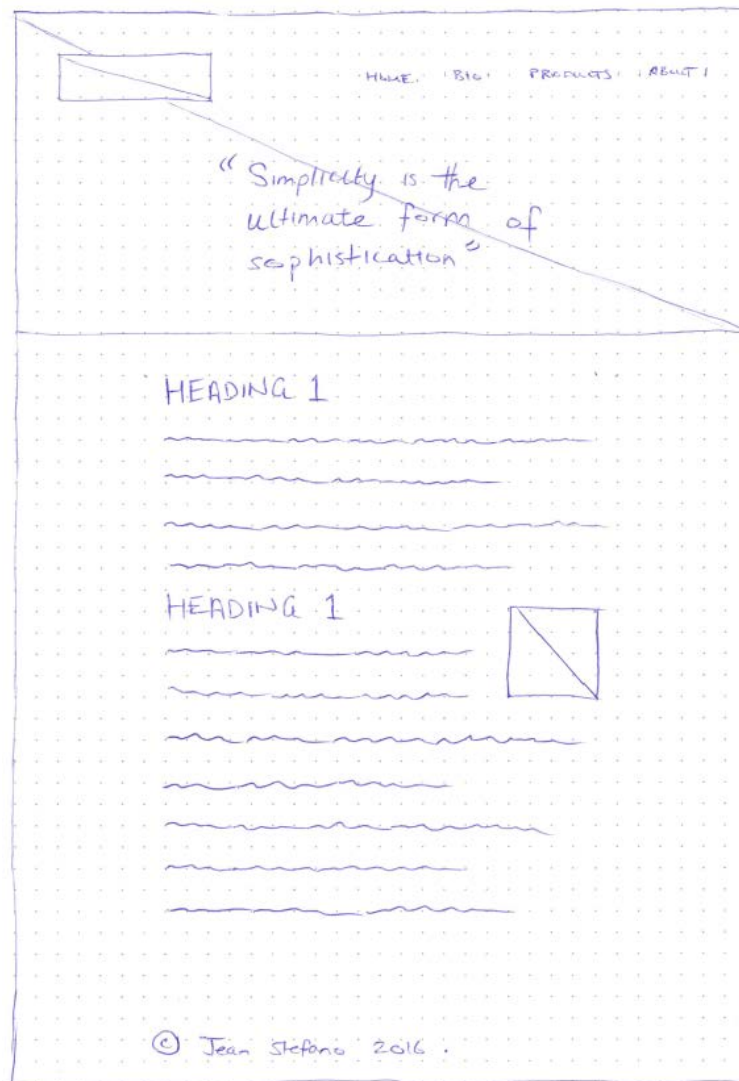 HOME. BIO. PRODUCTS. ABOUT.
“Simplicity is the
ultimate form of
sophistication”
HEADING 1
HEADING 1
© Jean Stefano 2016.